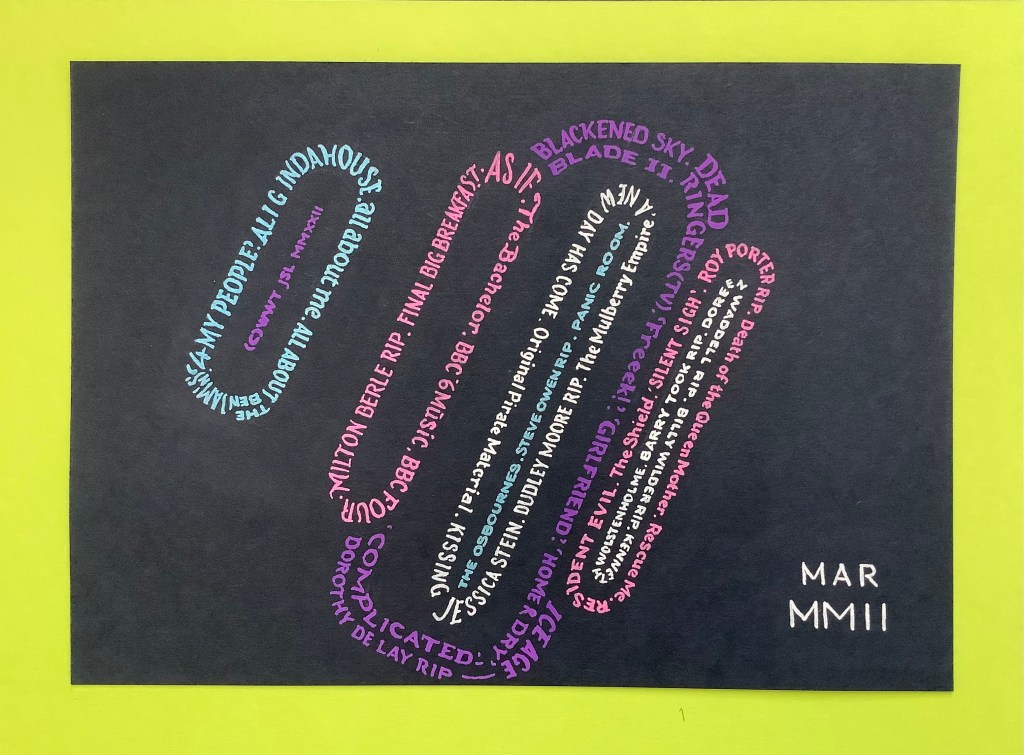 '4 MY PEOPLE'. ALI G INDAHOUSE. all about me. ALL ABOUT THE BENJAMINS.
(C) MWT JSL MMXXII
MILTON BERLE RIP. FINAL BIG BREAKFAST. AS IF. The Bachelor. BBC 6 Music. BBC FOUR.
BLACKENED SKY. DEAD RINGERS (TV). 'Freeek!'. 'GIRLFRIEND'. 'HOME & DRY'. ICE AGE
BLADE II.
'COMPLICATED'.
DOROTHY DE LAY RIP
A NEW DAY HAS COME. Original Pirate Material. KISSING JESSICA STEIN. DUDLEY MOORE RIP. The Mulberry Empire.
THE OSBOURNES. STEVE OWEN RIP. PANIC ROOM.
RESIDENT EVIL. The Shield. 'SILENT SIGH'. ROY PORTER RIP. Death of the Queen Mother. Rescue Me.
KENNETH WOLSTENHOLME. BARRY TOOK RIP. DOREEN WADDELL RIP. BILLY WILDER RIP.
MAR
MMII